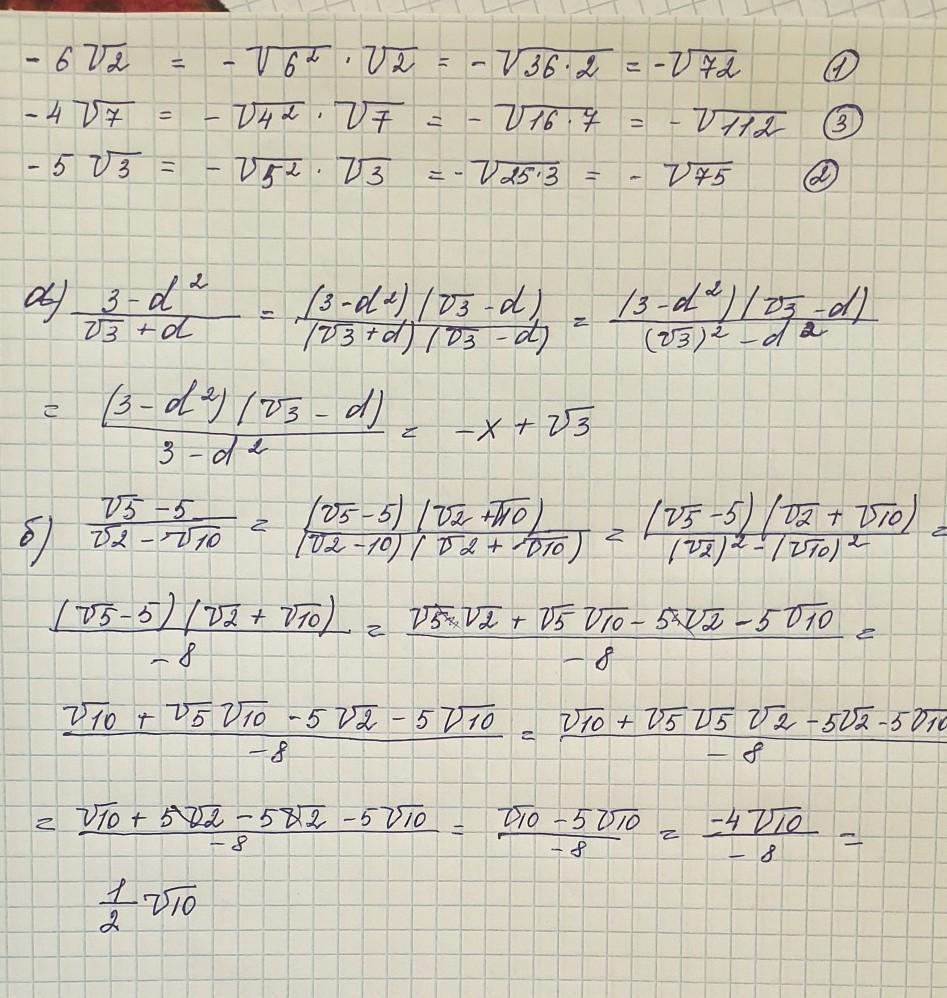 -6√2 = -√6² · √2 = -√36·2 = -√72 ①
-4√7 = -√4² · √7 = -√16·7 = -√112 ③
-5√3 = -√5² · √3 = -√25·3 = -√75 ②
а) (3-d²)/(√3+d) = ((3-d²)(√3-d))/((√3+d)(√3-d)) = ((3-d²)(√3-d))/((√3)²-d²)
= ((3-d²)(√3-d))/(3-d²) = -x+√3
б) (√5-5)/(√2-√10) = ((√5-5)(√2+√10))/((√2-10)(√2+√10)) = ((√5-5)(√2+√10))/((√2)²-(√10)²) =
((√5-5)(√2+√10))/(-8) = (√5√2+√5√10-5√2-5√10)/(-8) =
(√10+√5√10-5√2-5√10)/(-8) = (√10+√5√5√2-5√2-5√10)/(-8)
= (√10+5√2-5√2-5√10)/(-8) = (√10-5√10)/(-8) = (-4√10)/(-8) =
1/2 √10